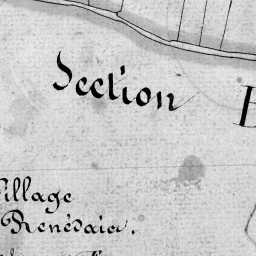 Section
Village
Renédaia.